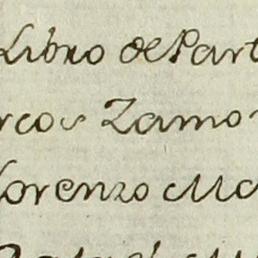 Libro de Part
rcos Zamo
lorenzo Ma